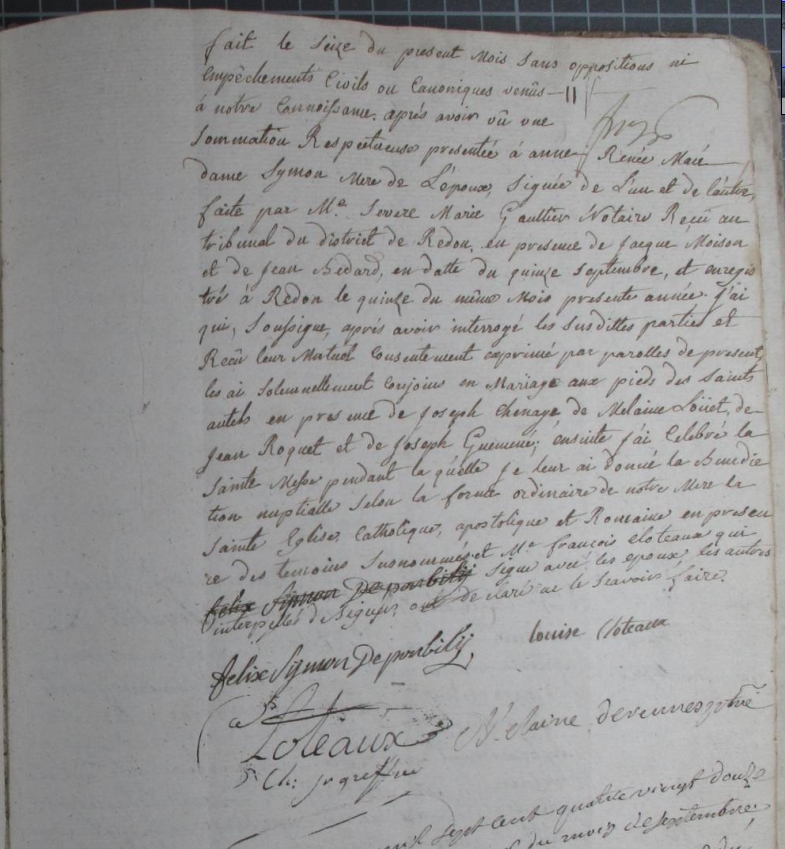 fait le Seize du present Mois Sans oppositions ni
Empêchements Civils ou Canoniques venus
à notre Connoissance. aprés avoir vû une
Sommation Respectueuse presentée à anne Renée
dame Symon Mere de L'epoux, Signée de L'un et de l'autre,
faite par Me. Severe Marie Gaultier Notaire Reçû au
tribunal du district de Redon, en presence de Jacque Moison
et de Jean Bedard, en datte du quinze Septembre, et enregis
tré à Redon le quinze du même Mois presente année. j'ai
qui, Soussigne, aprés avoir interrogé les Susdittes parties et
Recû leur Mutuel Consentement exprimé par parolles de present,
les ai Solemnellement Conjoins en Mariage aux pieds des Saints
autels en presence de Joseph Chenage de Melaine Loüet, de
Jean Roquet et de Joseph Guemené; ensuite j'ai Celebré la
Sainte Messe pendant la quelle Je leur ai donné la Benedic
tion nuptialle Selon la forme ordinaire de notre Mere la
Sainte Eglise Catholique, apostolique et Romaine en presen
ce des temoins Susnommés et Me. François Cloteaux qui
felix Symon De ponbilÿ Signe avec les epoux, les autres
interpellés de Signer, ont declaré ne le Scavoir faire.
felix Symon De ponbilÿ, louise Cloteaux
Cloteaux
Melaine
greffier
mil Sept Cent quatre vingt douze
du mois de Septembre